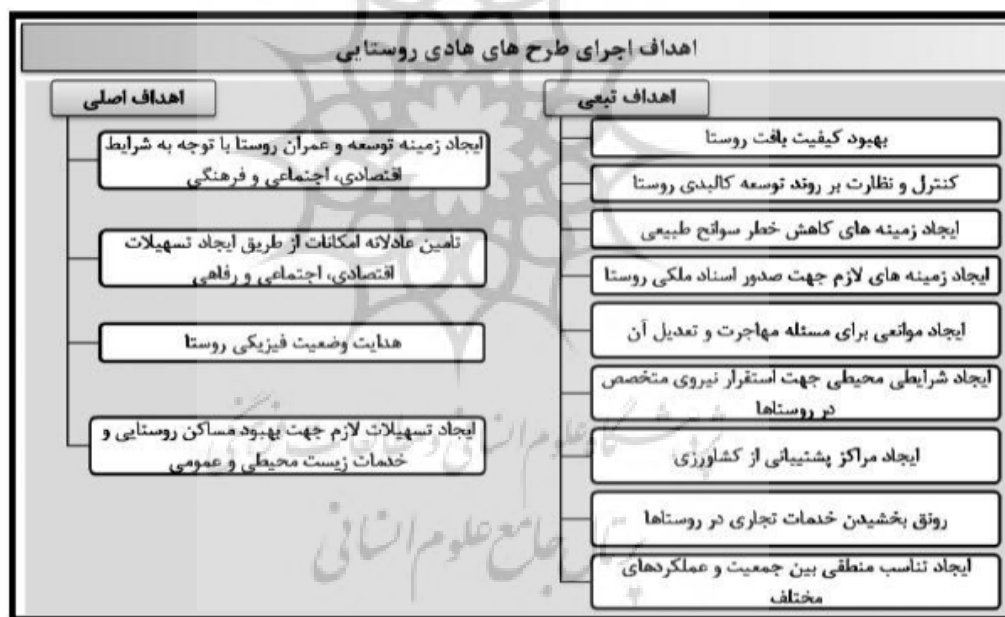 اهداف اجرای طرح های هادی روستایی
اهداف تبعی
بهبود کیفیت بافت روستا
کنترل و نظارت بر روند توسعه کالبدی روستا
ایجاد زمینه های کاهش خطر سوانح طبیعی
ایجاد زمینه های لازم جهت صدور اسناد ملکی روستا
ایجاد موانعی برای مسئله مهاجرت و تعدیل آن
ایجاد شرایطی محیطی جهت استقرار نیروی متخصص
در روستاها
ایجاد مراکز پشتیبانی از کشاورزی
رونق بخشیدن خدمات تجاری در روستاها
ایجاد تناسب منطقی بین جمعیت و عملکردهای
مختلف
اهداف اصلی
ایجاد زمینه توسعه و عمران روستا با توجه به شرایط
اقتصادی، اجتماعی و فرهنگی
تامین عادلانه امکانات از طریق ایجاد تسهیلات
اقتصادی، اجتماعی و رفاهی
هدایت وضعیت فیزیکی روستا
ایجاد تسهیلات لازم جهت بهبود مساکن روستایی و
خدمات زیست محیطی و عمومی
پژوهشگاه علوم انسانی و مطالعات فرهنگی
پرتال جامع علوم انسانی